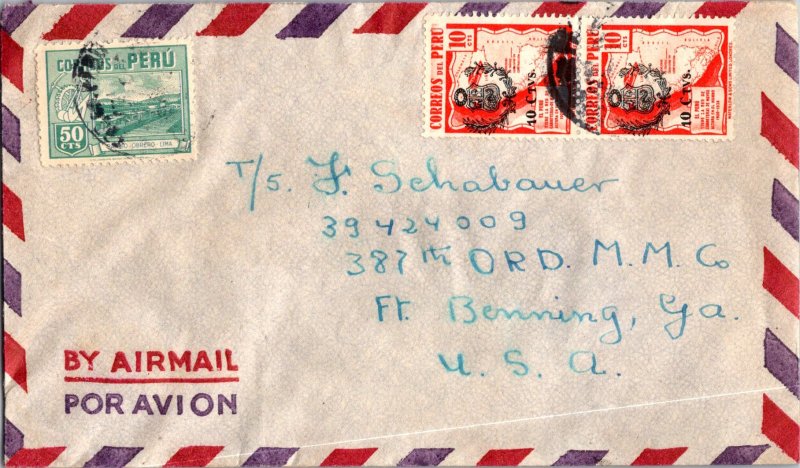 CORREOS DEL PERÚ
50
CTS
OBRERO - LIMA
CORREOS DEL PERÚ
10
CTS
10 Ctvs.
CORREOS DEL PERÚ
10
CTS
EL PERÚ
10 Ctvs.
T/5. F. Schabauer
39424009
387th ORD. M. M. Co
Ft. Benning, Ga.
U. S. A.
BY AIRMAIL
POR AVION